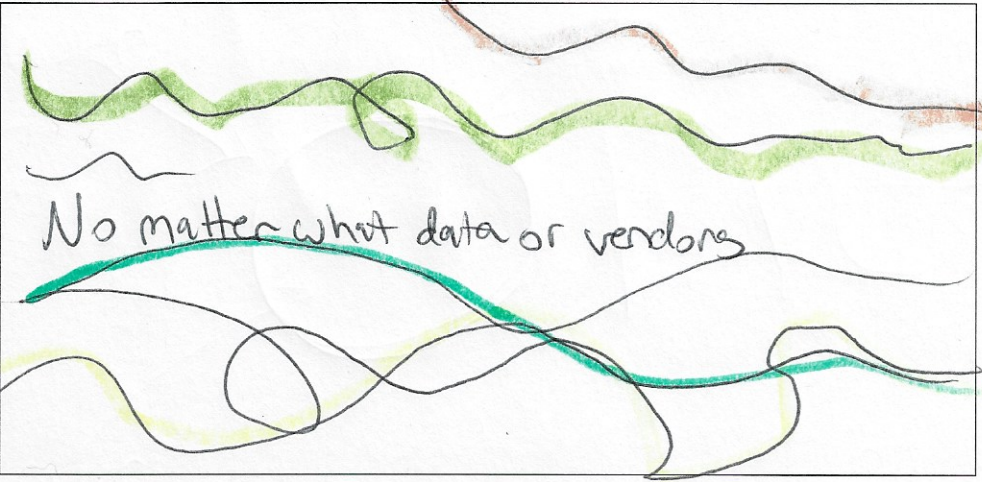 No matter what data or vendors